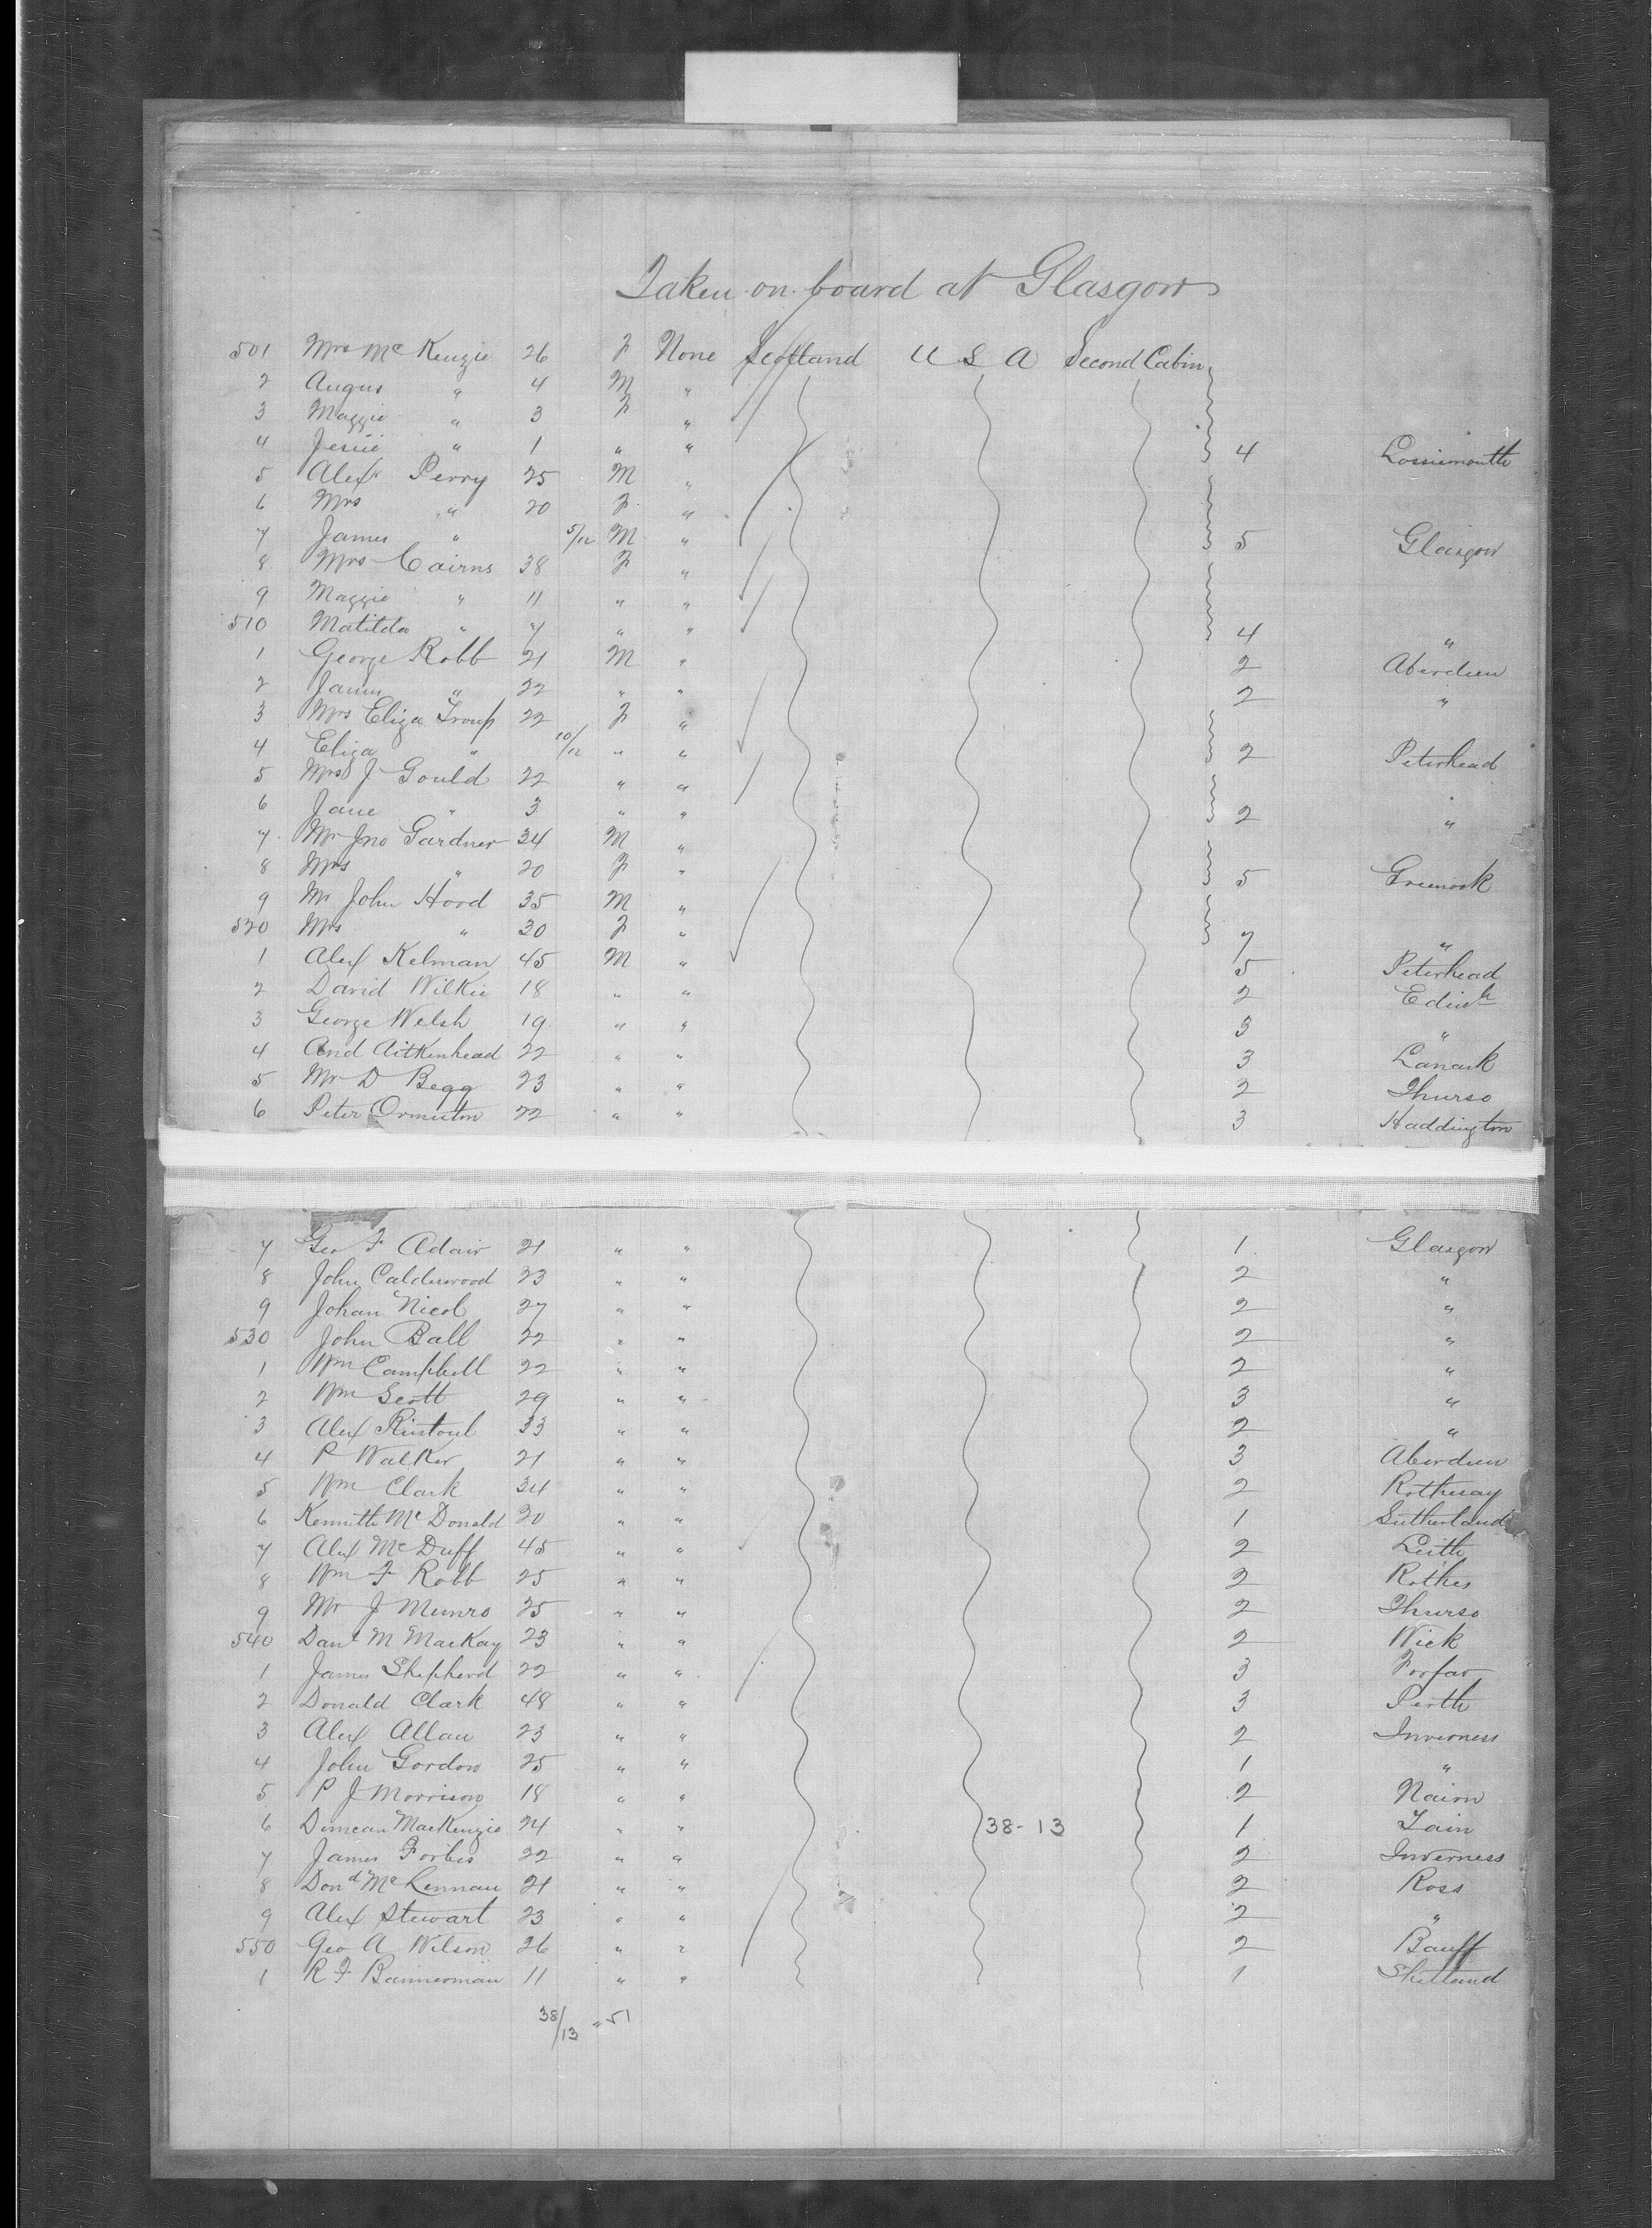 Taken on board at Glasgow
501 Mrs Mc Kenzie 26 F None Scotland U S A Second Cabin
2 Angus " 4 M "
3 Maggie " 3 F "
4 Jessie " 1 " " 4 Lossiemouth
5 Alexr Perry 25 M "
6 Mrs " 20 F "
7 James " 5/12 M " 5 Glasgow
8 Mrs Cairns 38 F "
9 Maggie " 11 " "
510 Matilda " 7 " " 4 "
1 George Robb 21 M " 2 Aberdeen
2 James " 22 " " 2 "
3 Mrs Eliza Troup 22 F "
4 Eliza " 10/12 " " 2 Peterhead
5 Mrs J Gould 22 " "
6 Jane " 3 " " 2 "
7 Mr Jno Gardner 34 M "
8 Mrs " 20 F " 5 Greenock
9 Mr John Hood 35 M "
520 Mrs " 30 F " 7 "
1 Alex Kelman 45 M " 5 Peterhead
2 David Wilkie 18 " " 2 Edinh
3 George Welsh 19 " " 3 "
4 And Aitkenhead 22 " " 3 Lanark
5 Mr D Begg 23 " " 2 Thurso
6 Peter Ormiston 22 " " 3 Haddington
7 Geo F Adair 21 " " 1 Glasgow
8 John Calderwood 23 " " 2 "
9 Johan Nicol 27 " " 2 "
530 John Ball 22 " " 2 "
1 Wm Campbell 22 " " 2 "
2 Wm Scott 29 " " 3 "
3 Alex Rintoul 33 " " 2 "
4 P Walker 21 " " 3 Aberdeen
5 Wm Clark 34 " " 2 Rothesay
6 Kenneth Mc Donald 30 " " 1 Sutherland
7 Alex Mc Duff 45 " " 2 Leith
8 Wm F Robb 25 " " 2 Rothes
9 Mr J Munro 25 " " 2 Thurso
540 Danl M MacKay 23 " " 2 Wick
1 James Shepherd 22 " " 3 Forfar
2 Donald Clark 48 " " 3 Perth
3 Alex Allan 23 " " 2 Inverness
4 John Gordon 25 " " 1 "
5 P J Morrison 18 " " 2 Nairn
6 Duncan MacKenzie 24 " " 38-13 1 Tain
7 James Forbes 22 " " 2 Inverness
8 Dond Mc Lennan 21 " " 2 Ross
9 Alex Stewart 23 " " 2 "
550 Geo A Wilson 26 " " 2 Banff
1 R F Bannerman 11 " " 1 Shetland
38/13 = 51